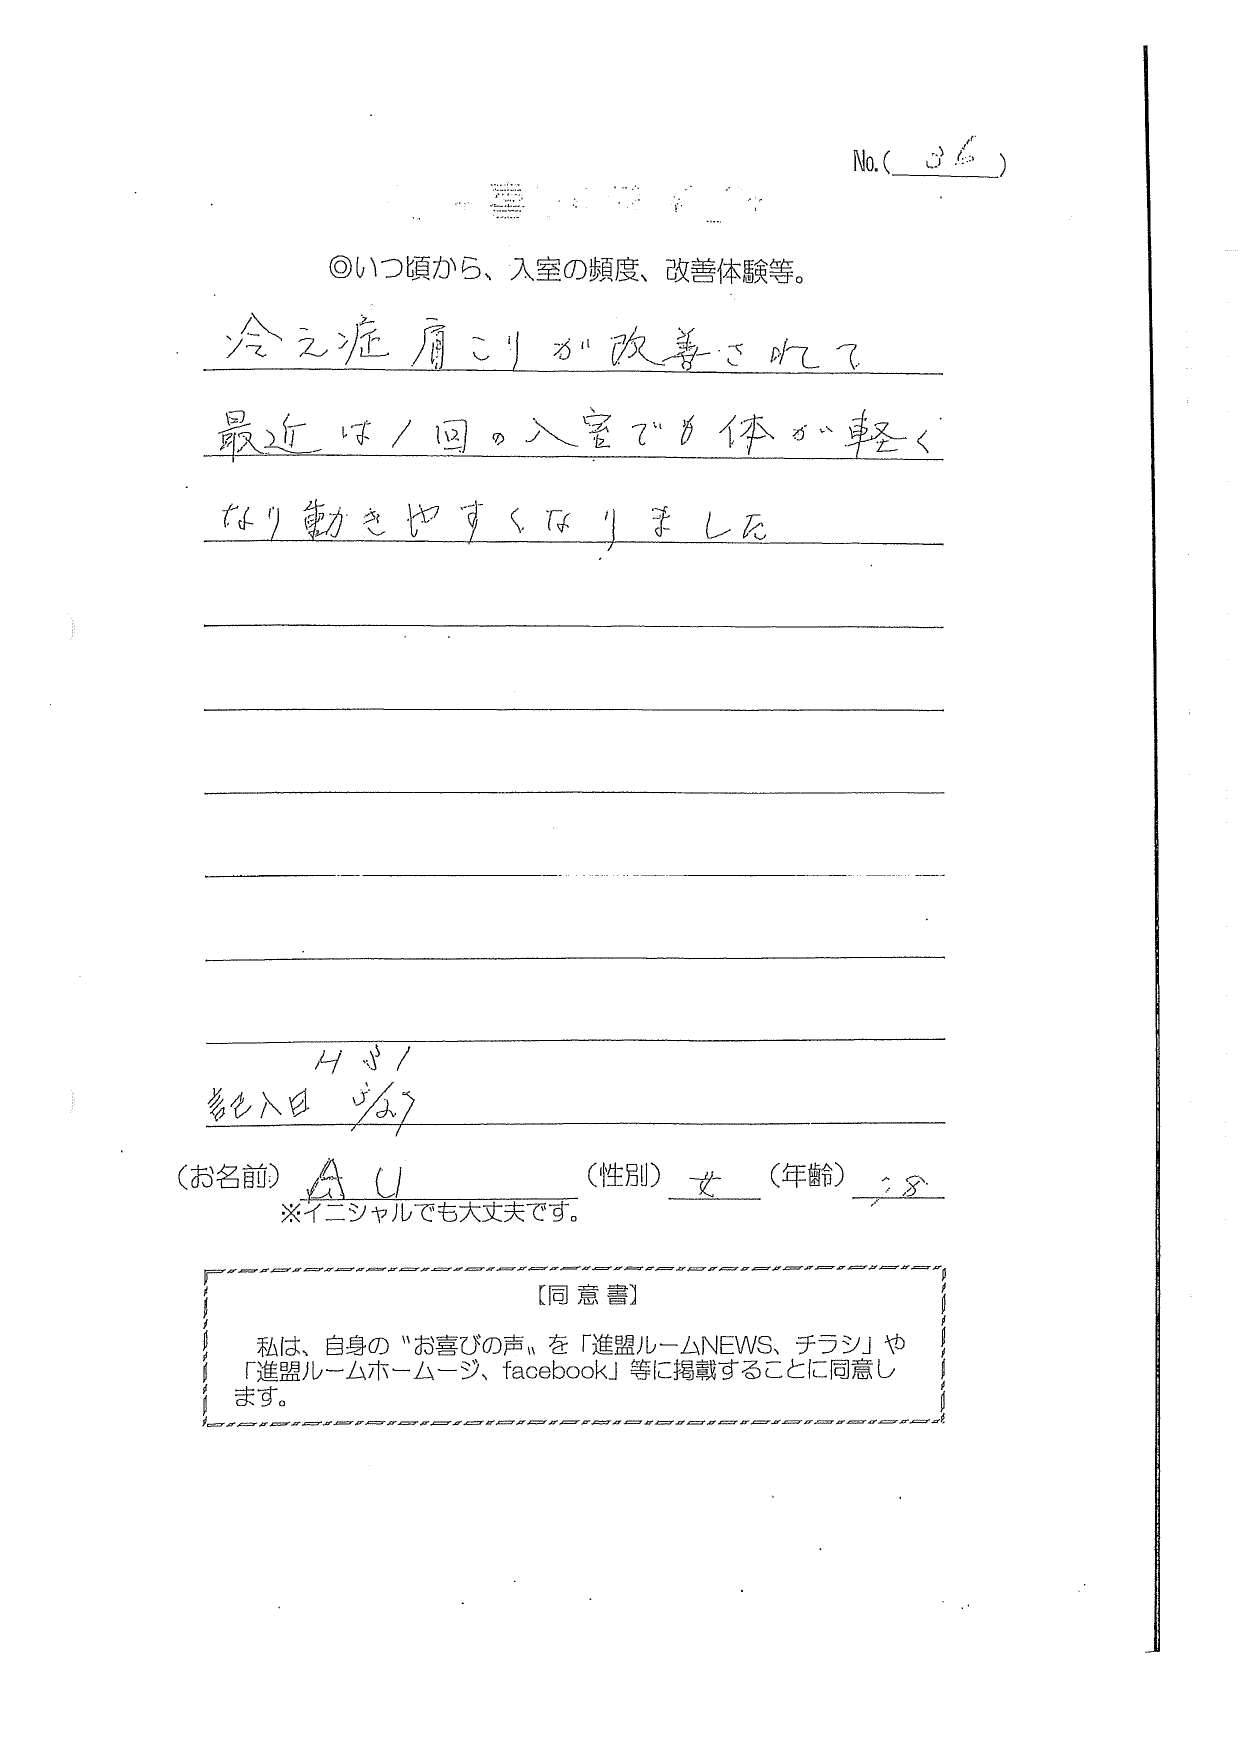 No.( 36 )
◎いつ頃から、入室の頻度、改善体験等。
冷え症肩こりが改善されて
最近は1回の入室でも体が軽く
なり動きやすくなりました
H31
記入日 5/27
(お名前) A U (性別) 女 (年齢)
※イニシャルでも大丈夫です。
【同意書】
私は、自身の〝お喜びの声〟を「進盟ルームNEWS、チラシ」や
「進盟ルームホームージ、facebook」等に掲載することに同意し
ます。